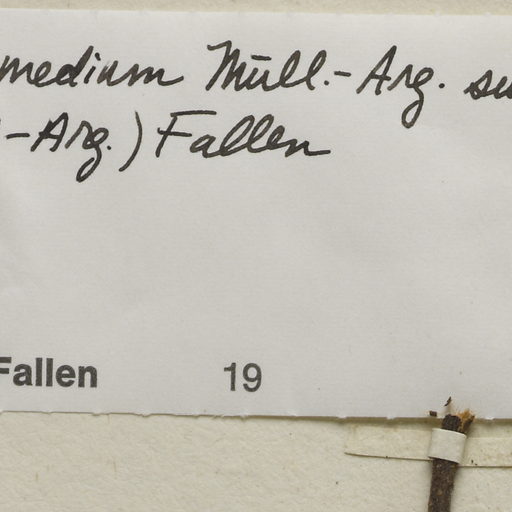 medium Müll.-Arg. su
-Arg.) Fallen
Fallen 19